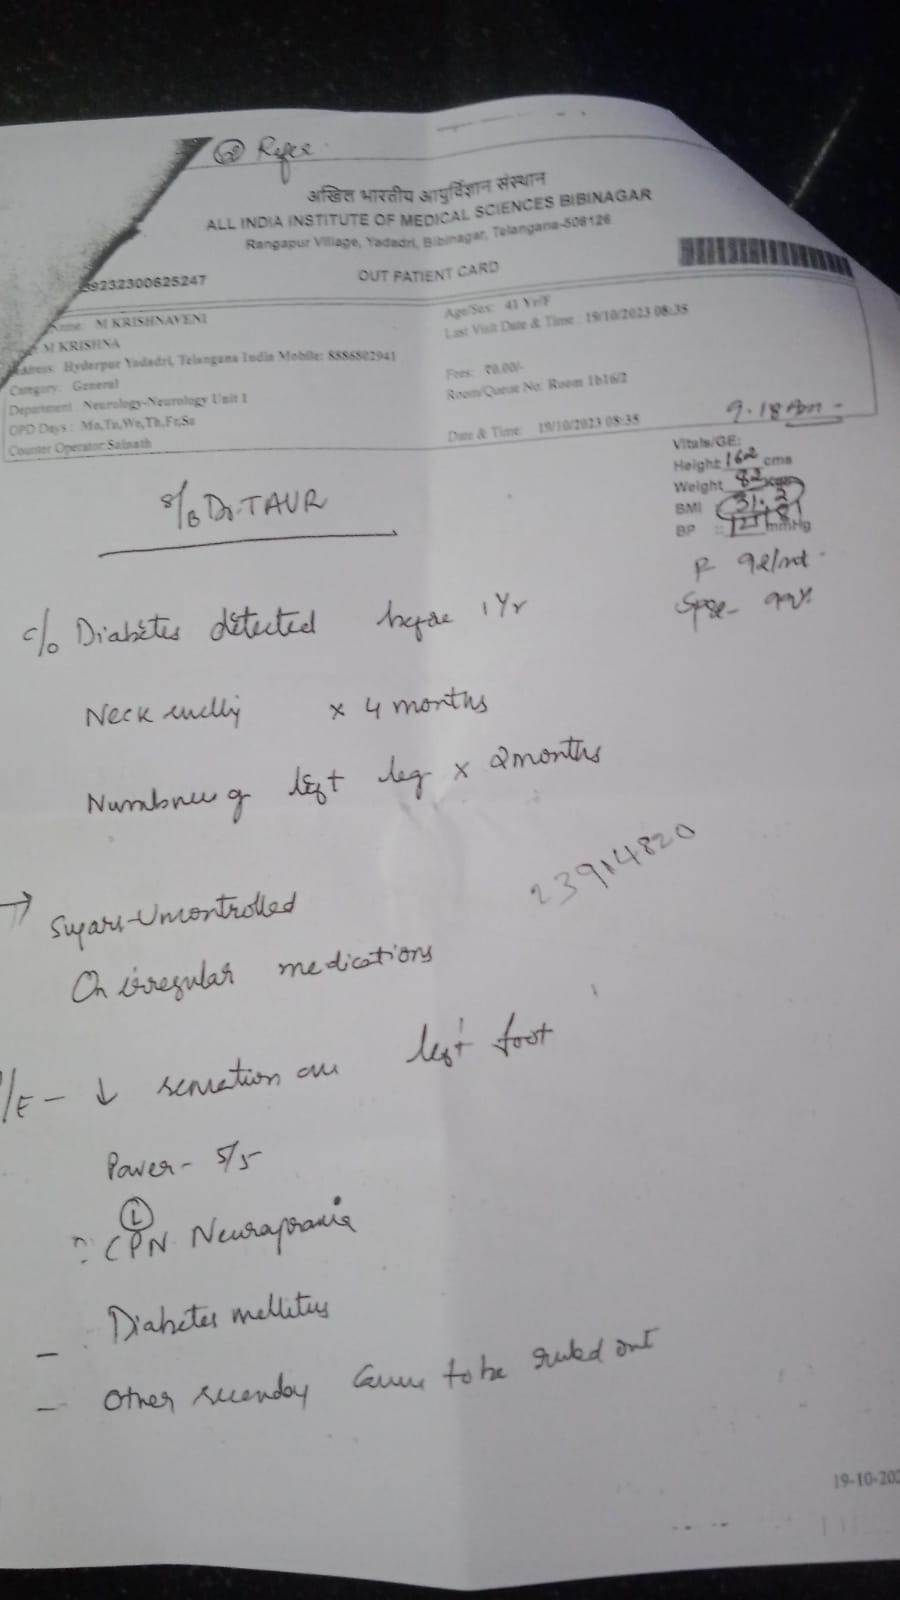 @ Refer
अखिल भारतीय आयुर्विज्ञान संस्थान
ALL INDIA INSTITUTE OF MEDICAL SCIENCES BIBINAGAR
Rangapur Village, Yadadri, Bibinagar, Telangana-508126
OUT PATIENT CARD
9232300625247
Name: M KRISHNAVENI
M KRISHNA
Address: Hyderpur Yadadri, Telangana India Mobile: 8886802941
Category: General
Department: Neurology-Neurology Unit 1
OPD Days: Mo,Tu,We,Th,Fr,Sa
Counter Operator: Sainath
Age/Sex: 41 Yr/F
Last Visit Date & Time: 19/10/2023 08:35
Fees: ₹0.00/-
Room/Queue No: Room 1b16/2
Date & Time: 19/10/2023 08:35
9.18 Am -
Vitals/GE:
Height: 162 cms
Weight 82 kgs
BMI 31.2
BP : mmHg
Spo2- 99%
S/B Dr. TAUR
c/o Diabetes detected before 1 Yr
Neck x 4 months
Numbness of left leg x 2 months
23914820
→ Sugars-Uncontrolled
On irregular medications
/E - ↓ sensation left foot
Power - 5/5
(L)
CPN Neurapraxia
- Diabetes mellitus
- Other secondary cause to be ruled out
19-10-202